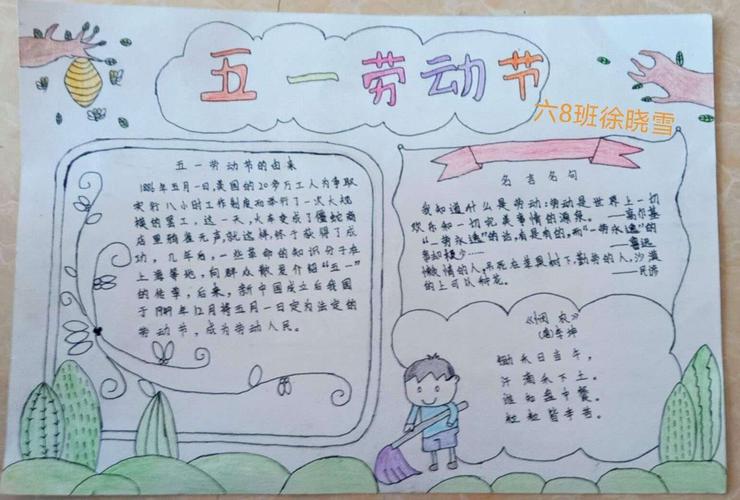 五一劳动节
六8班徐晓雪
五一劳动节的由来
1886年五月一日,美国的20多万工人为争取
实行八小时工作制度而举行了一次大规
模的罢工,这一天,火车变成了僵蛇商
店里鸦雀无声,就这样,终于获得了成
功,几年后,一些革命的知识分子在
上海等地,向群众散发介绍“五一”
的传单,后来,新中国成立后我国
于1949年12月将五月一日定为法定的
劳动节,成为劳动人民。
名言名句
我知道什么是劳动:劳动是世界上一切
欢乐和一切完美事情的源泉。——高尔基
“一劳永逸”的话,有是有的,而“一劳永逸”的
事却极少……——鲁迅
懒惰的人,吊死在苹果树下,勤劳的人,沙漠
的上可以种花。——民谚
《悯农》
(唐)李绅
锄禾日当午,
汗滴禾下土。
谁知盘中餐,
粒粒皆辛苦。